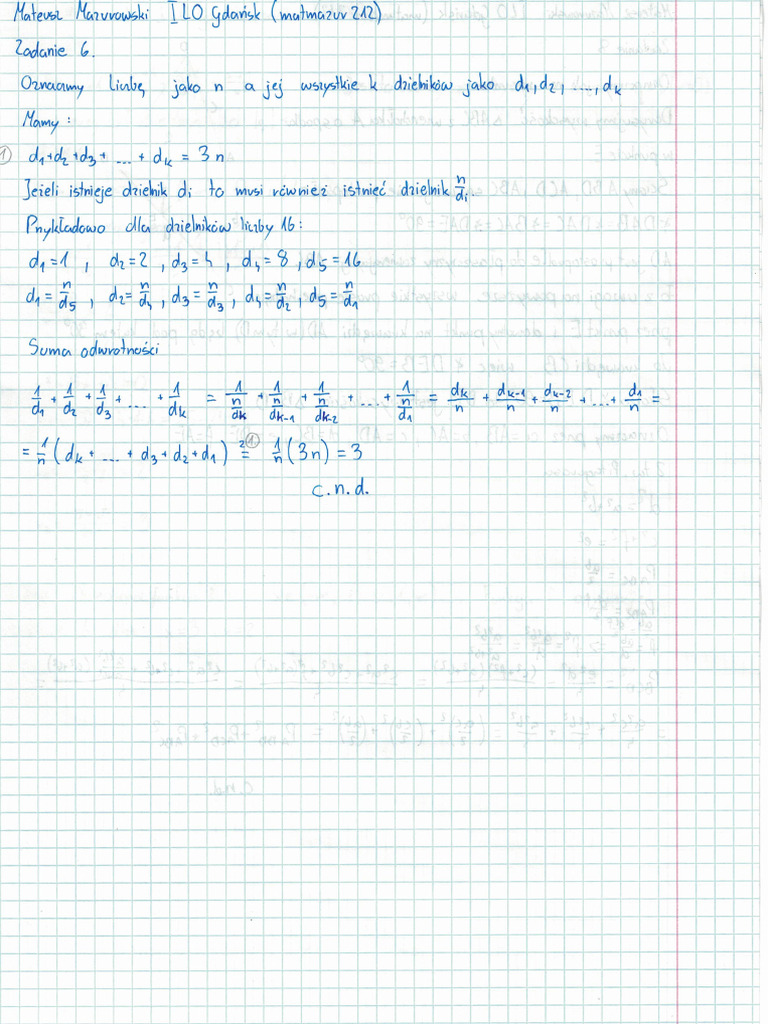 Mateusz Mazurowski I LO Gdańsk (matmazur212)
Zadanie 6.
Oznaczmy liczbę jako n a jej wszystkie k dzielników jako d₁, d₂, ...., dₖ
Mamy:
① d₁+d₂+d₃+ ... + dₖ = 3n
Jeżeli istnieje dzielnik dᵢ to musi również istnieć dzielnik n/dᵢ.
Przykładowo dla dzielników liczby 16:
d₁=1 , d₂=2 , d₃=4 , d₄=8 , d₅=16
d₁=n/d₅ , d₂=n/d₄ , d₃=n/d₃ , d₄=n/d₂ , d₅=n/d₁
Suma odwrotności
1/d₁ + 1/d₂ + 1/d₃ + ... + 1/dₖ = 1/(n/dₖ) + 1/(n/dₖ₋₁) + 1/(n/dₖ₋₂) + ... + 1/(n/d₁) = dₖ/n + dₖ₋₁/n + dₖ₋₂/n + ... + d₁/n =
= 1/n (dₖ + ... + d₃ + d₂ + d₁) =^{z ①} 1/n (3n) = 3
c.n.d.